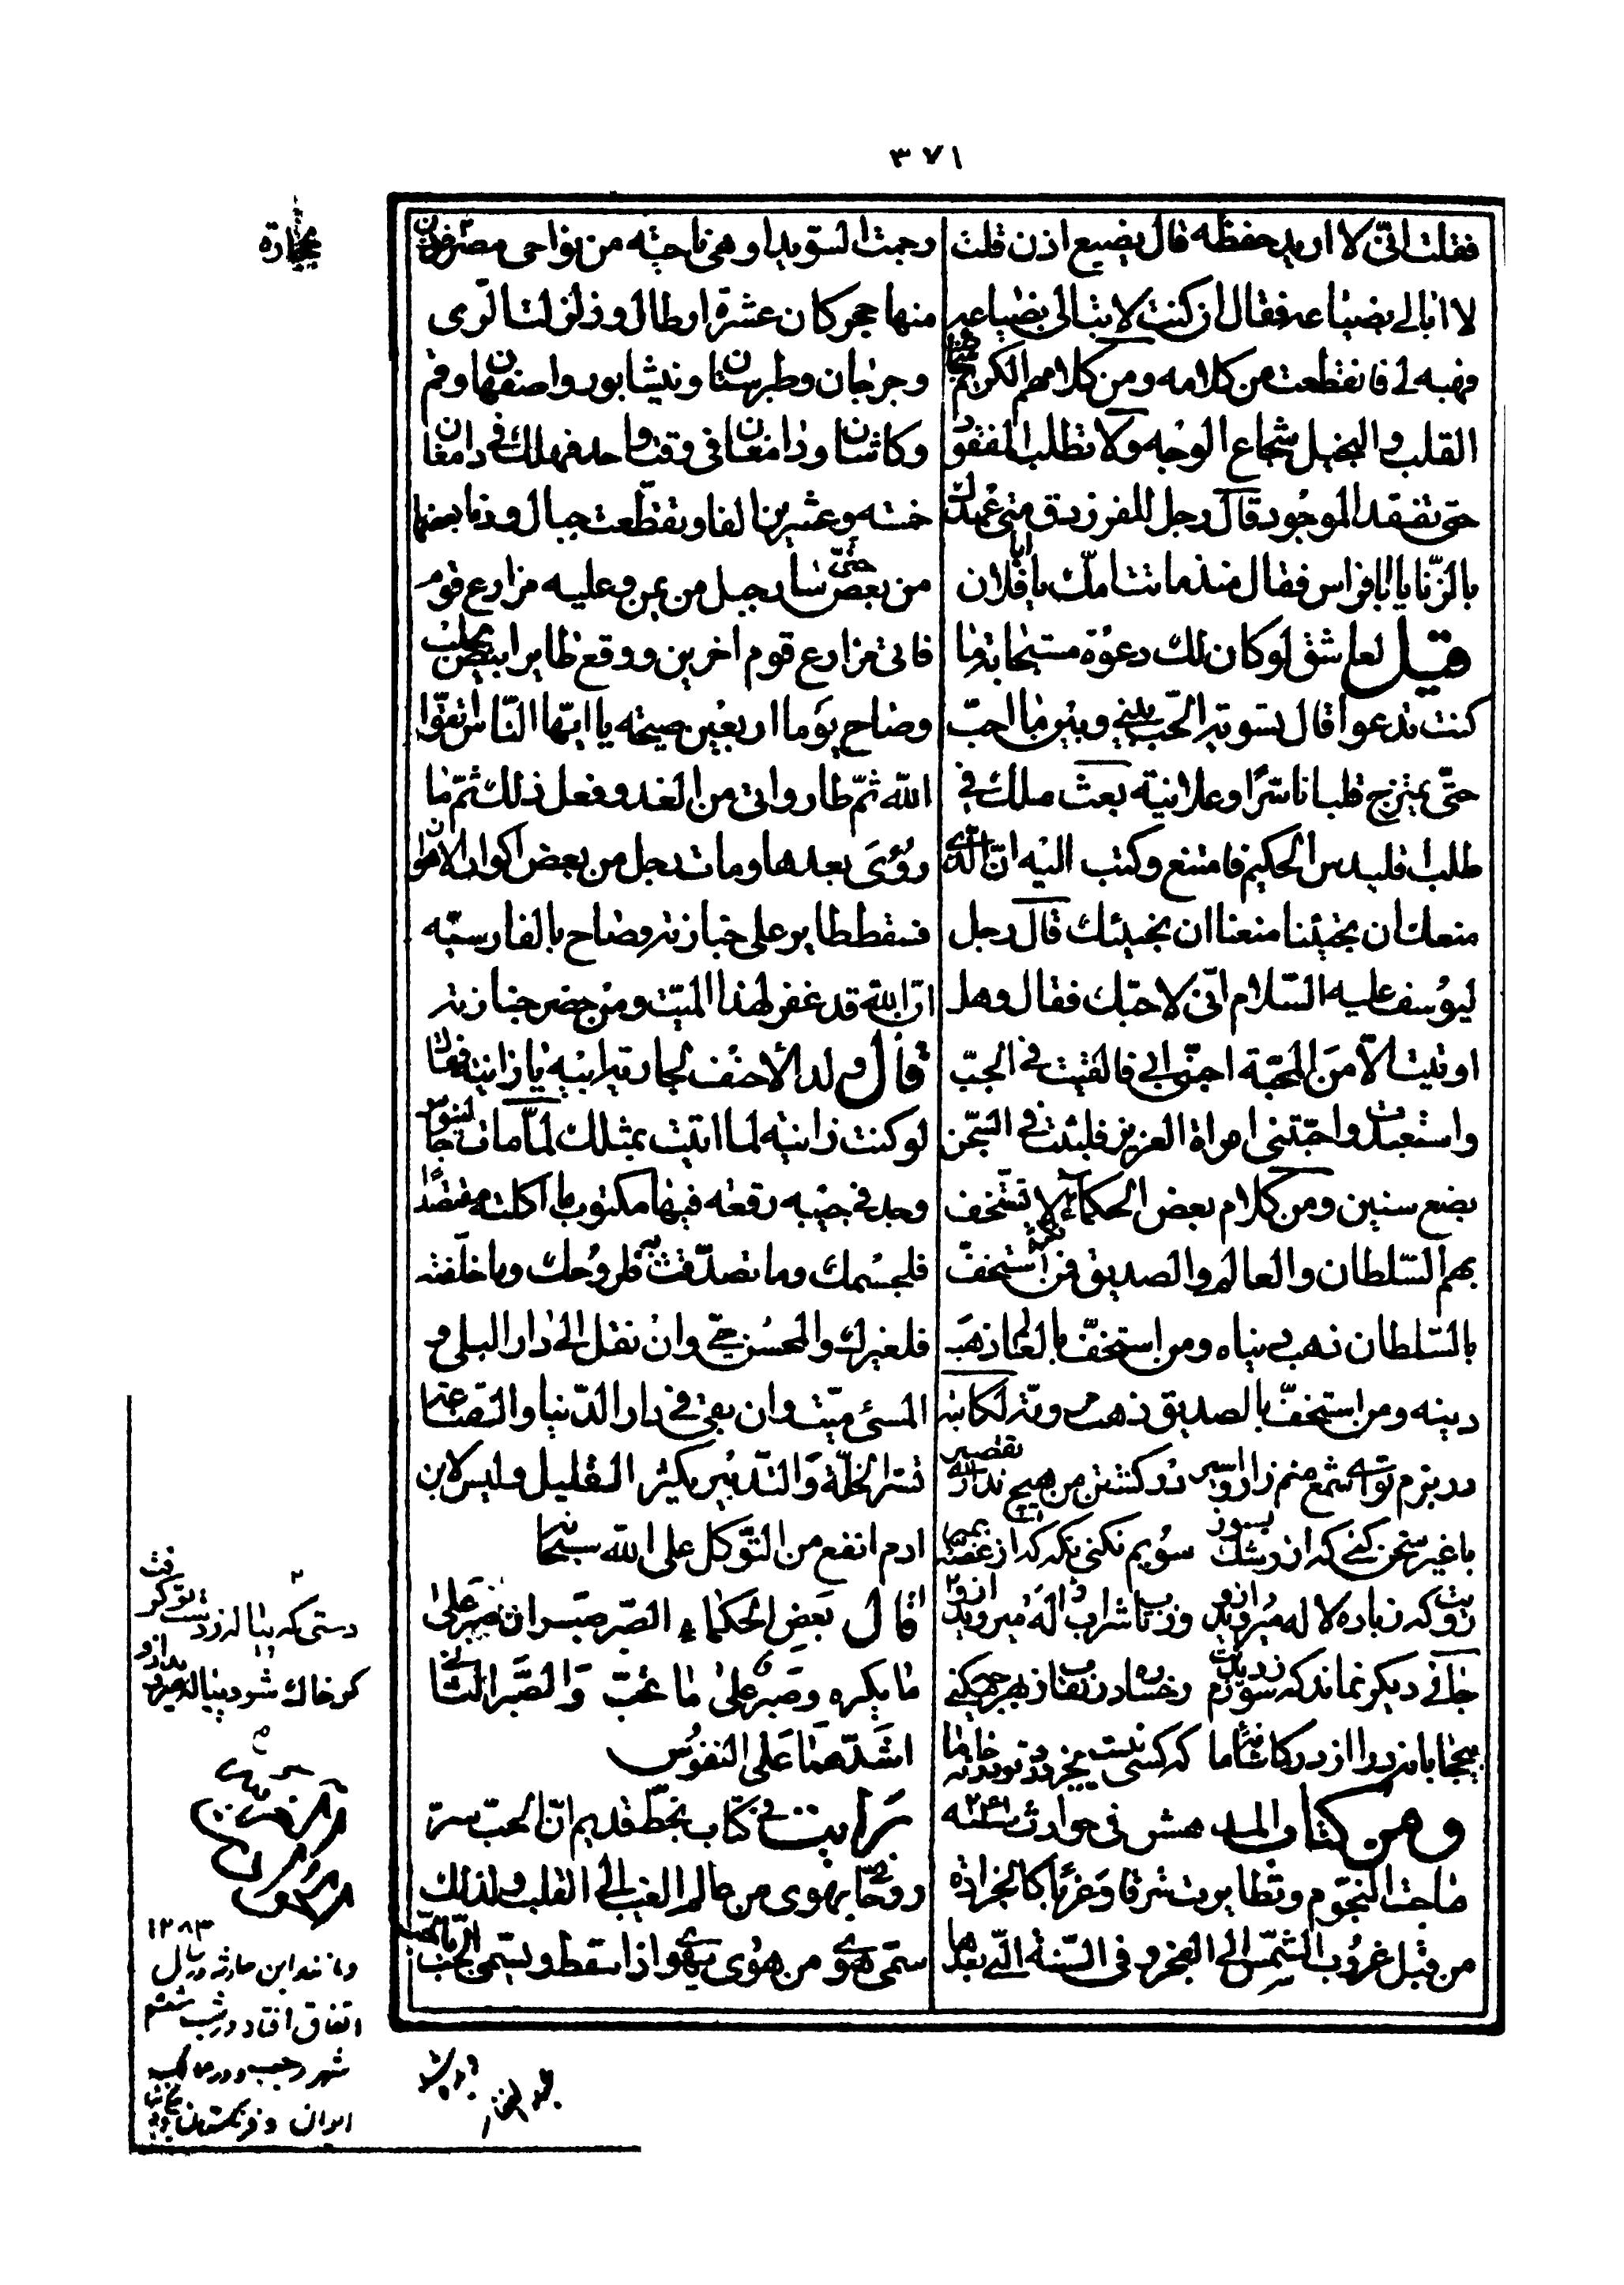 ٣٧١
فقلت انّى لا اريد حفظه قال يضيع اذن قلت
لا ابالى بضياعه فقال ان كنت لا تبالى بضياعه
فهبه لى فانقطعت من كلامه ومن كلامهم الكريم شجاع
القلب والبخيل شجاع الوجه ولا تطلب المفقود
حتى تفقد الموجود قال رجل للفرزدق متى عهدك
بالزنا يا ابا فراس فقال منذ ماتت امك يا ابا فلان
قيل لعاشق لو كان لك دعوة مستجابة ما
كنت تدعوا قال تسوية الحب بينى وبين ما احبّ
حتّى يمتزج قلبانا سرًّا وعلانية بعث ملك فى
طلب اقليدس الحكيم فامتنع وكتب اليه انّ الّذى
منعك ان تجيئنا منعنا ان نجيئك قال رجل
ليوسف عليه السّلام انّى لاحبّك فقال وهل
اوتيت الّا من المحبّة احبّنى ابى فالقيت فى الجبّ
واستعبدت واحبّتنى امراة العزيز فلبثت فى السّجن
بضع سنين ومن كلام بعض الحكماء ثلاثة لا يستخف
بهم السّلطان والعالم والصديق فمن استخفّ
بالسّلطان ذهب دنياه ومن استخفّ بالعالم ذهب
دينه ومن استخفّ بالصديق ذهبت مروته لكاتبه
در بزم تو اى شمع منم زار و اسير در كشتن من هيچ ندارى تقصير
با غير سخن كنى كه از رشك بسوز سويم نكنى نگه كه از غصّه بمير
جائى ديگر نماند كه سوزم
بيجابانه درا از در كاشانه ما كه كسى نيست بجز درد تو در خانه ما
ومن كتاب المدهش فى حوادث سنة ٢٤١
ماجت النجوم وتطايرت شرقا وغربا كالجراد
من قبل غروب الشمس الى الفجر وفى السّنة الّتى بعدها
رجمت السّويدا وهى ناحية من نواحى مصر
منها حجر كان عشرة ارطال وزلزلت الرى
وجرجان وطبرستان ونيشابور واصفهان وقم
وكاشان ودامغان فى وقت واحد فهلك فى دامغان
خمسة وعشرين الفا وتقطّعت جبال ودنا بعضها
من بعض حتّى سار جبل من يمن وعليه مزارع قوم
فاتى مزارع قوم اخرين ووقع طاير ابيض بحلب
وصاح يوما اربعين صيحة يا ايّها النّاس اتّقوا
اللّه ثمّ طار واتى من الغد وفعل ذلك ثمّ ما
رؤى بعدها ومات رجل من بعض اكوار الاهواز
فسقط طاير على جنازته وصاح بالفارسيّه
انّ اللّه قد غفر لهذا الميّت ومن حضر جنازته
قال ولد الأحنف لجارية ابيه يا زانية فقالت
لو كنت زانية لما اتيت بمثلك لمّا مات جالينوس
وجد فى جيبه رقعة فيها مكتوب ما اكلته مقتصدًا
فلجسمك وما تصدّقت به فلروحك وما خلّفته
فلغيرك والمحسن حىّ وان نقل الى دار البلى و
المسئ ميّت وان بقى فى دار الدّنيا والقناعة
تستر الخلّة والتّدبير يكثر القليل وليس لابن
ادم انفع من التّوكل على اللّه سبحانه
قال بعض الحكماء الصّبر صبران صبر على
ما يكره وصبر على ما تحبّ والصّبر الثّانى
اشدّهما على النفوس
رايت فى كتاب بخطّ قديم انّ الحب سرّ
روحانى يهوى من عالم الغيب الى القلب ولذلك
سمّى هوى من هوى يهوى اذا سقط ويسمّى الحب
١٢٨٣
مانند اين حادثه در سال
اتفاق افتاد در شب ششم
شهر رجب
ايران و فرنگستان